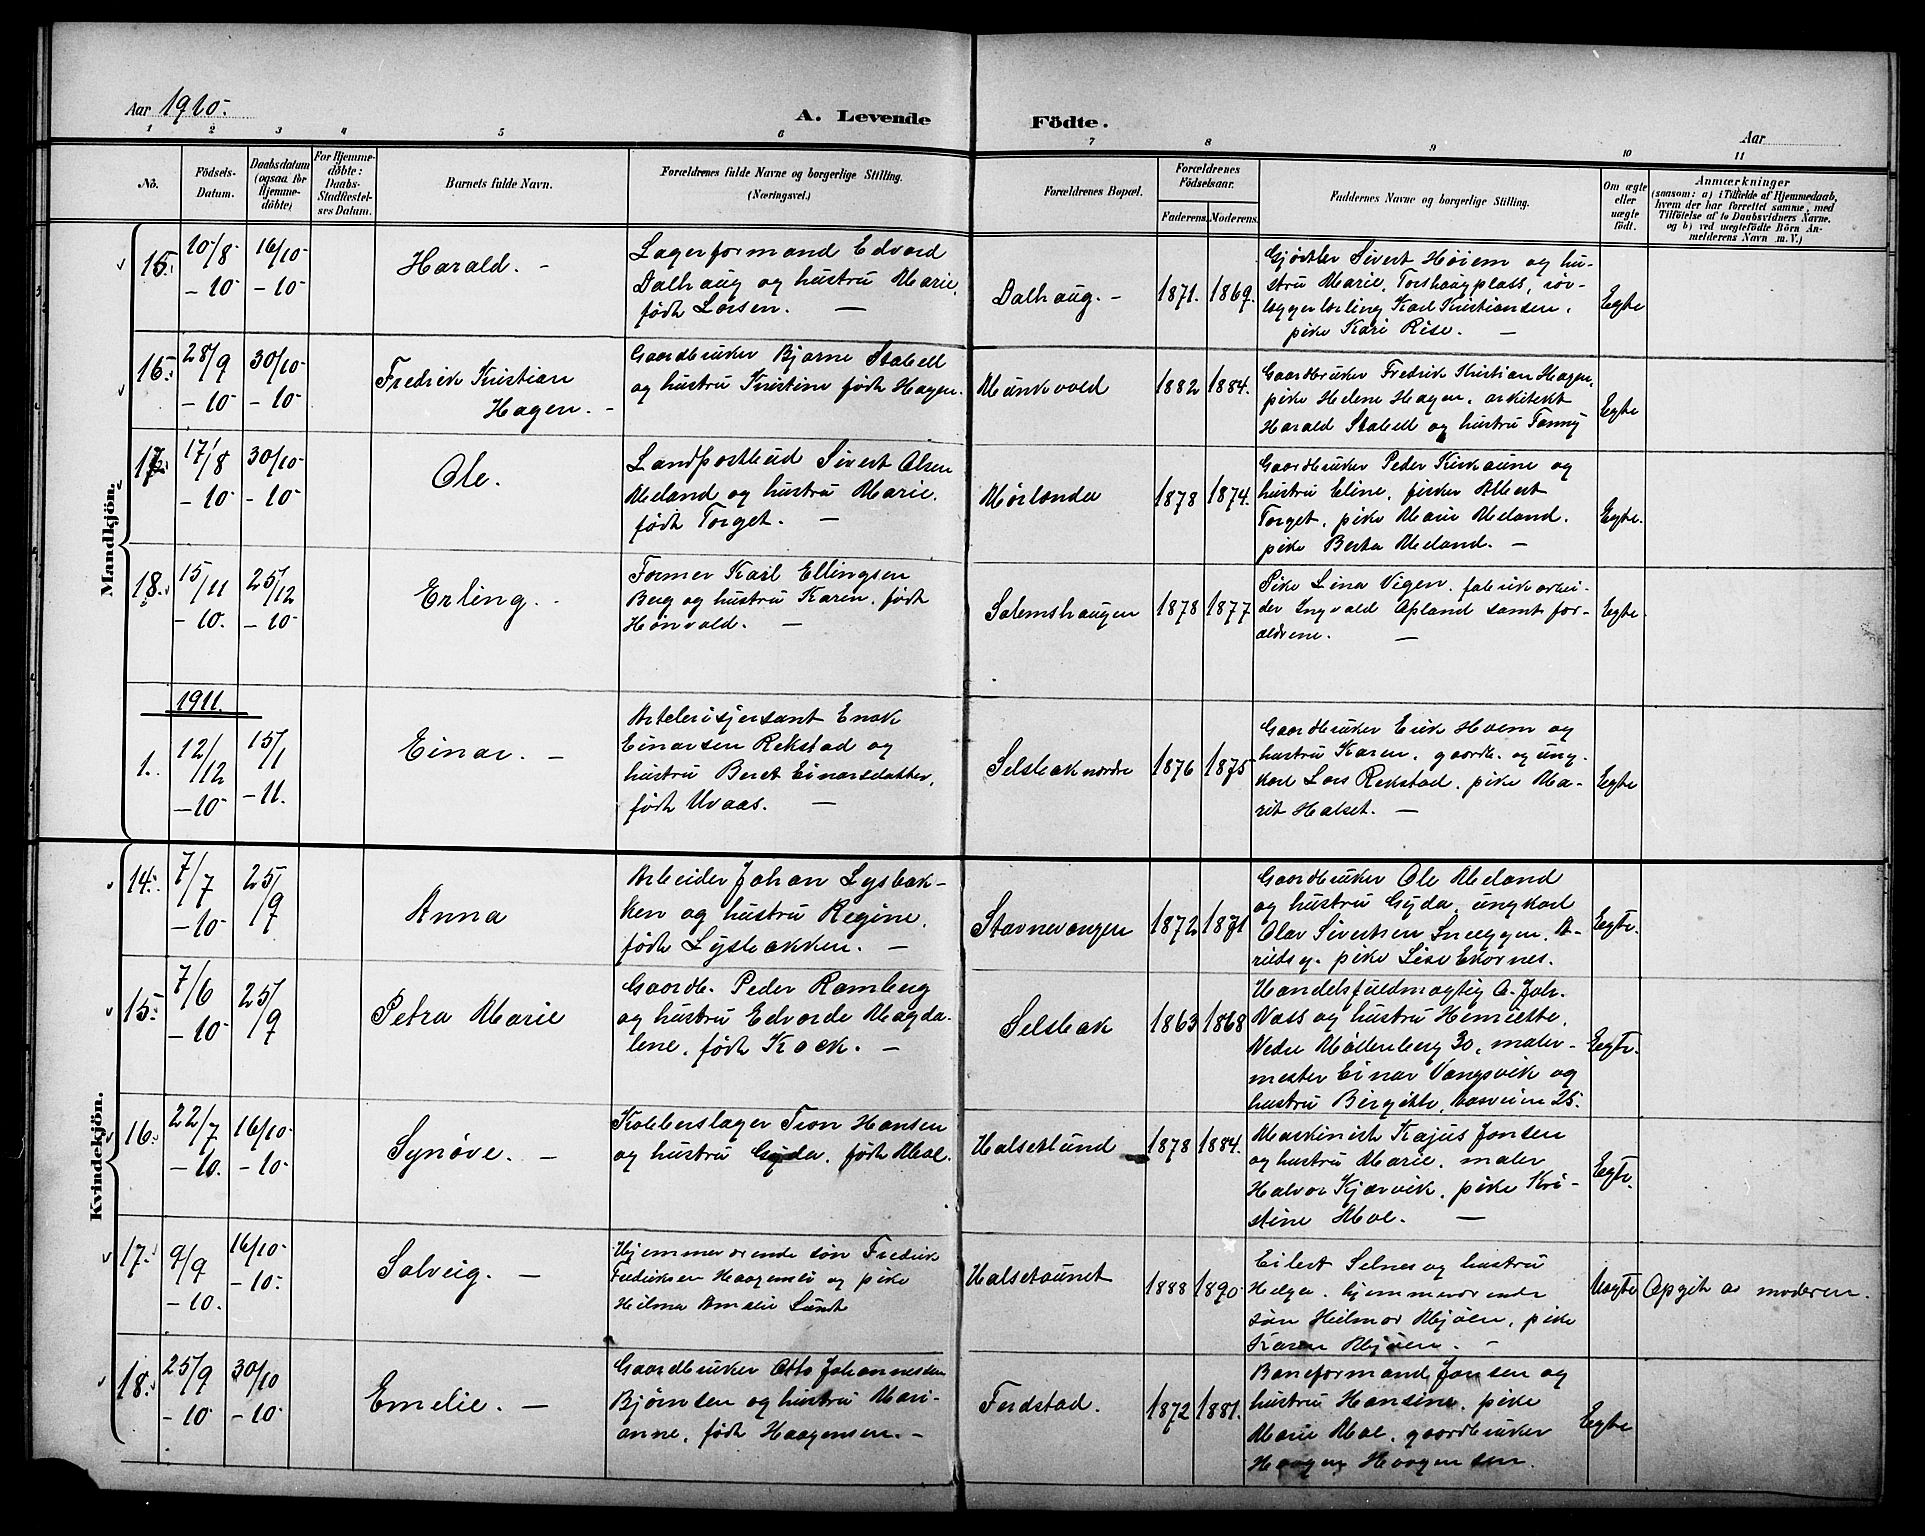 Aar 1910.
A. Levende Födte.
Aar
1 2 3 4 5 6 7 8 9 10 11
No.
Födsels-
Datum.
Daabsdatum
(ogsaa for
Hjemme-
döbte)
For Hjemme-
döbte:
Daabs-
Stadfæstel-
ses Datum.
Barnets fulde Navn.
Forældrenes fulde Navne og borgerlige Stilling.
(Næringsvei.)
Forældrenes Bopæl.
Forældrenes
Födselsaar.
Faderens.
Moderens.
Faddernes Navne og borgerlige Stilling.
Om ægte
eller
uægte
født.
Anmærkninger
(saasom: a) i Tilfælde af Hjemmedaab,
hvem der har forrettet samme, med
Tilföielse af to Daabsvidners Navne.
og b) ved uægtefödte Börn An-
melderens Navn m. V.)
Mandkjön.
15.
10/8
- 10 -
16/10
- 10 -
Harald. -
Lagerformand Edvard
Dalhaug og hustru Marie,
født Larsen. -
Dalhaug. -
1871. 1869.
Gjørtler Sivert Høiem og hu-
stru Marie, Torshaugplass, rør-
læggerlærling Karl Kristiansen,
pike Kari Rise. -
Egte
16.
28/9
- 10 -
30/10
- 10 -
Fredrik Kristian
Hagen. -
Gaardbruker Bjarne Stabell
og hustru Kristine født Hagen.
Munkvold
1882 1884.
Gaardbruker Fredrik Kristian Hagen,
pike Helene Hagen, arkitekt
Harald Stabell og hustru Fanny
Egte
17.
17/8
- 10 -
30/10
- 10 -
Ole.
Landpostbud Sivert Olsen
Meland og hustru Marie,
født Torget. -
Mørlanda
1878 1874.
Gaardbruker Peder Kirkaune og
hustru Eline, fisker Albert
Torget, pike Marie Meland.
pike Berta Meland. -
Egte.
18.
15/11
- 10.
25/12
- 10 -
Erling. -
Former Karl Ellingsen
Berg og hustru Karen, født
Hønvald. -
Salemshaugen
1878 1877
Pike Lina Vigen, fabrikarbei-
der Ingvald Apland samt for-
ældrene. -
Egte.
1911.
1.
12/12
- 10 -
15/1
- 11.
Einar. -
Artelerisjersant Enok
Einarsen Rekstad og
hustru Beret Einarsdatter,
født Uvaas. -
Selsbak nordre
1876 1875
Gaardbruker Erik Hoem og
hustru Karen, gaardb. og ung-
karl Lars Rekstad, pike Ma-
rit Halset. -
Egte
Kvindekjön.
14.
7/7
- 10 -
25/9
Anna
Arbeider Johan Lysbak-
ken og hustru Regine,
født Lysbakken. -
Stavnevangen
1872 1871
Gaardbruker Ole Meland
og hustru Gyda, ungkarl
Olav Sivertsen Sneeggen, A-
rildsg. pike Lise Ekornes.
Egte.
15.
7/6
- 10 -
25/9
Petra Marie
Gaardb. Peder Ramberg
og hustru Edvarde Magda-
lene, født Kock. -
Selsbak
1863 1868
Handelsfuldmægtig A. Joh.
Nass og hustru Henriette,
Nedre Møllenberg 30, maler-
mester Einar Vangsvik og
hustru Birgitte,
Egte.
16.
22/7
- 10.
16/10
- 10 -
Synøve. -
Kobberslager Tron Hansen
og hustru Gyda, født Moe.
Halsetlund
1878 1884.
Maskinist Kajus Jonsen
og hustru Marie, maler
Halvor Kjærvik, pike Kri-
stine Moe. -
Egte.
17.
9/9
- 10.
16/10
- 10 -
Solveig. -
Hjemmeværende søn Fredrik
Fredriksen Haagensli og pike
Hilma Amalie Lund
Halsetaunet
1888 1890
Eilert Selnes og hustru
Helga. hjemmeværende
søn Hilmar Mjøen, pike
Karen Mjøen. -
Uægte
Opgit av moderen.
18.
25/9
- 10 -
30/10
- 10 -
Emelie. -
Gaardbruker Otto Johannesen
Bjørnsen og hustru Mari-
anne, født Haagensen. -
Ferdstad.
1872 1881.
Baneformand Jonsen og
hustru Hansine, pike
Marie Moe, gaardbruker
Haagen Haagensen.
Egte